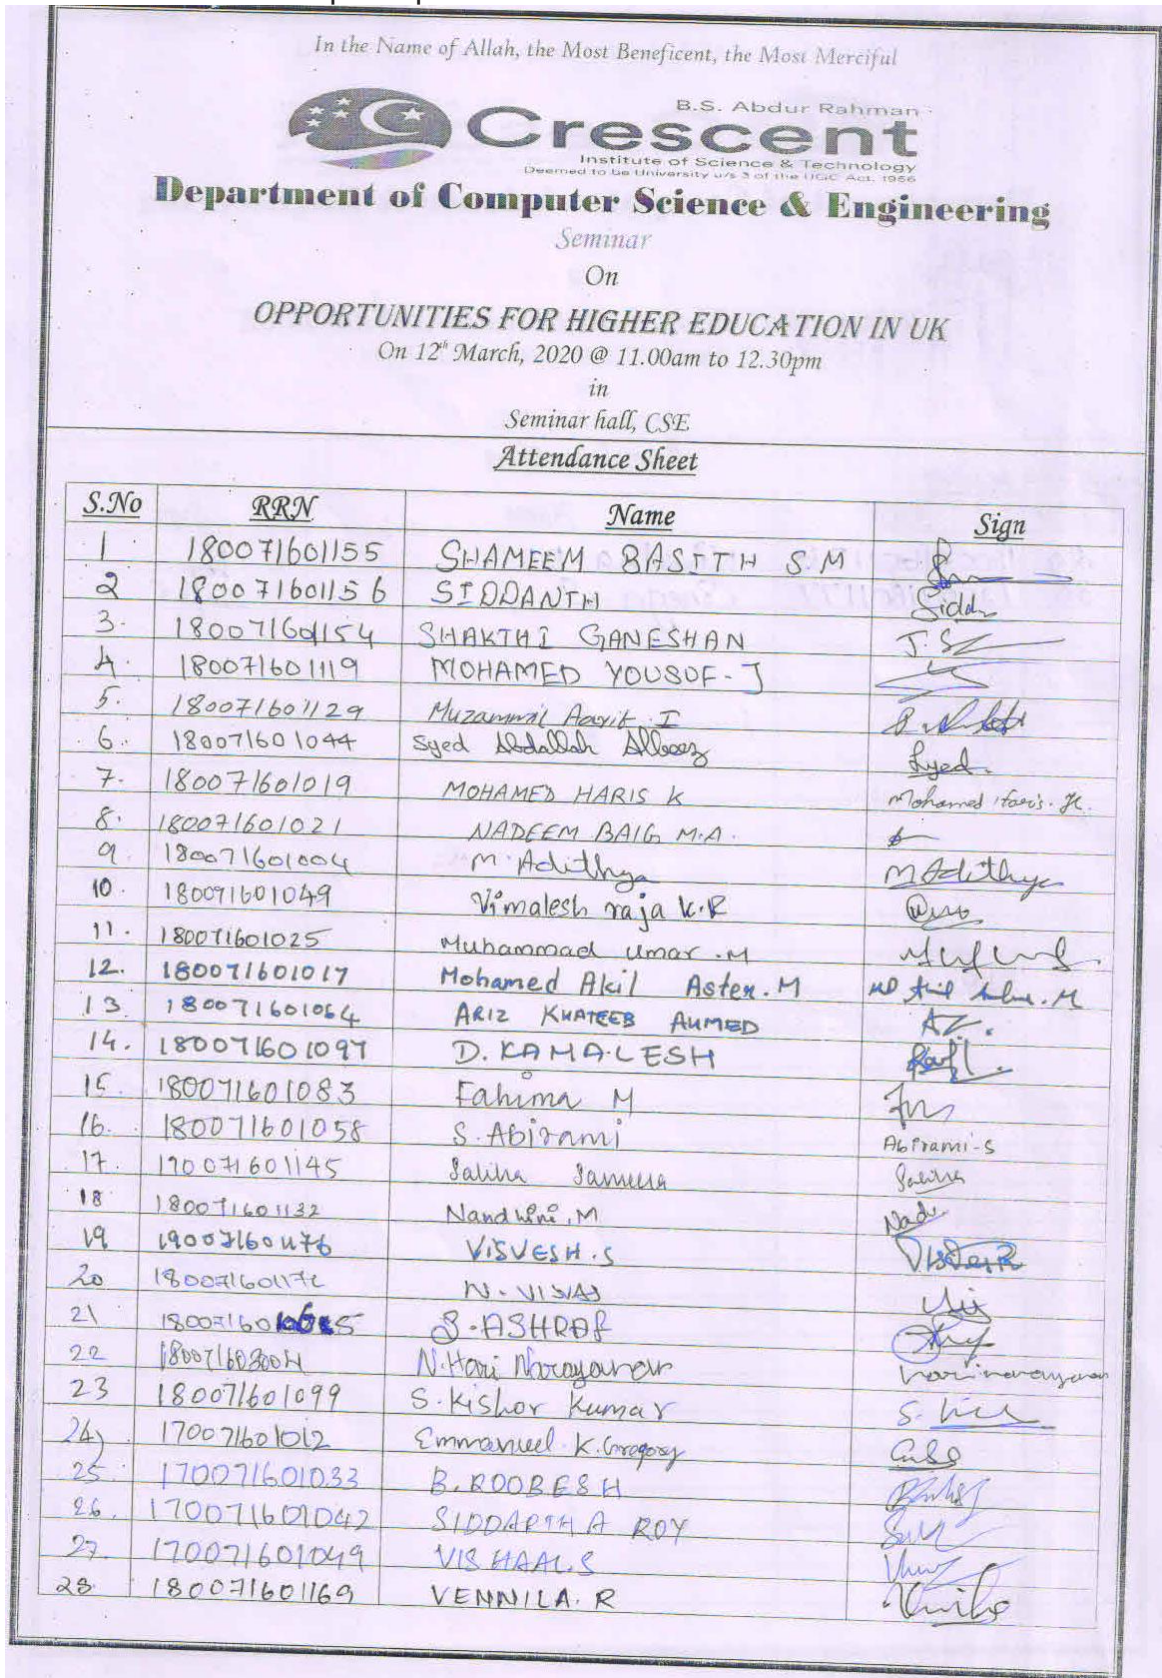 In the Name of Allah, the Most Beneficent, the Most Merciful
B.S. Abdur Rahman
Crescent
Institute of Science & Technology
Deemed to be University u/s 3 of the UGC Act. 1956
Department of Computer Science & Engineering
Seminar
On
OPPORTUNITIES FOR HIGHER EDUCATION IN UK
On 12th March, 2020 @ 11.00am to 12.30pm
in
Seminar hall, CSE
Attendance Sheet
S.No RRN Name Sign
1 180071601155 SHAMEEM BASITH S.M
2 180071601156 SIDDANTH Sidd
3. 180071601154 SHAKTHI GANESHAN
4. 180071601119 MOHAMED YOUSUF-J
5. 180071601129 Muzammil Aarif I
6. 180071601044 Syed Abdallah Syed.
7. 180071601019 MOHAMED HARIS K Mohamed Haris. K.
8. 180071601021 NADEEM BAIG M.A.
9. 180071601004 M. Adithya M Adithya
10. 180071601049 Vimalesh raja K.R
11. 180071601025 Muhammad Umar .M
12. 180071601017 Mohamed Akil Aster. M
13. 180071601064 ARIZ KHATEEB AHMED AZ.
14. 180071601097 D. KAMALESH
15. 180071601083 Fahima M
16. 180071601058 S. Abirami Abirami-S
17. 170071601145 Saliha
18 180071601132 Nandhini, M
19 VISVESH. S
20 N. VISWAS
21 S. ASHRAF
22 N. Hari Narayanan harinarayanan
23 180071601099 S. Kishor Kumar
24) 170071601012 Emmanuel K. Gregory
25. 170071601033 B. ROOBESH
26. 170071601042 SIDDARTHA ROY
27. 170071601049 VISHAAL.S
28. 180071601169 VENNILA. R